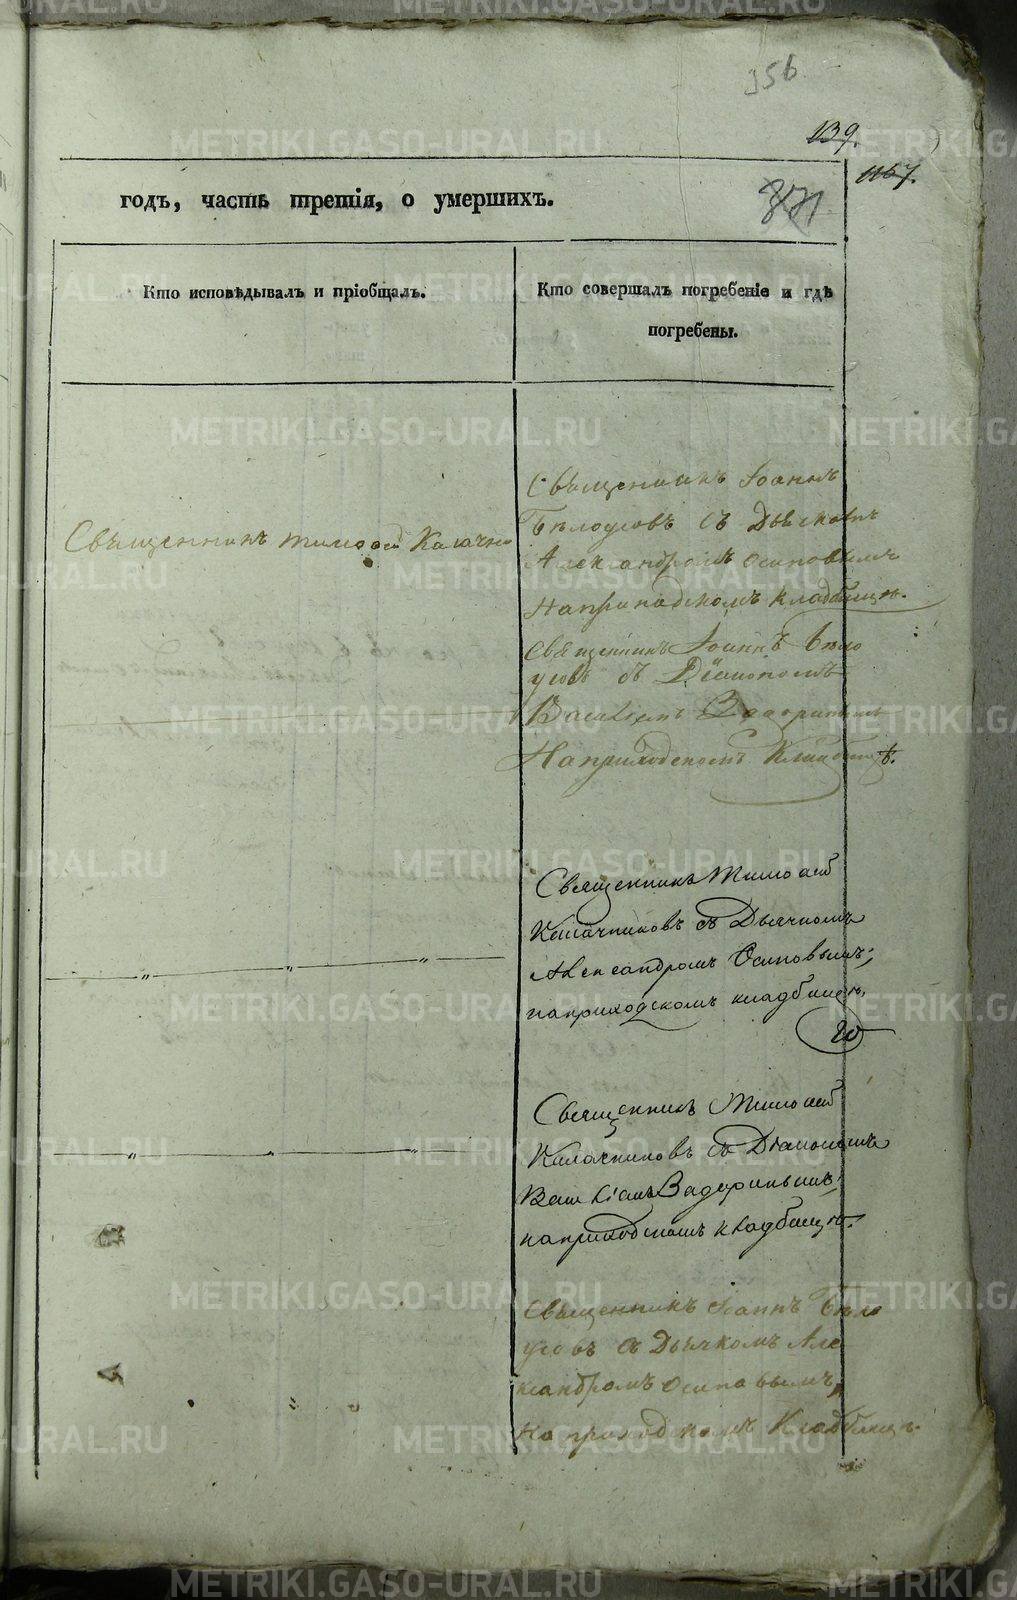 356
139.
1167.
годъ, часть третія, о умершихъ.
371.
Кто исповѣдывалъ и пріобщалъ.
Кто совершалъ погребеніе и гдѣ
погребены.
Священникъ Іоаннъ
Бѣлоусовъ съ Дьячкомъ
Священникъ Тимоѳей Калачни
Александромъ Осиповымъ
На приходскомъ кладбищѣ.
Священникъ Іоаннъ Бѣло
усовъ съ Діакономъ
Василіемъ Задоринымъ
На приходскомъ Кладбищѣ.
Священникъ Тимоѳей
Калачниковъ съ Дьячкомъ
Александромъ Осиповымъ;
на приходскомъ кладбищѣ.
Священникъ Тимоѳей
Калачниковъ съ Діакономъ
Василіемъ Задоринымъ;
на приходскомъ кладбищѣ.
Священникъ Іоаннъ Бѣло
усовъ съ Дьячкомъ Але
ксандромъ Осиповымъ,
На приходскомъ Кладбищѣ.
METRIKI.GASO-URAL.RU